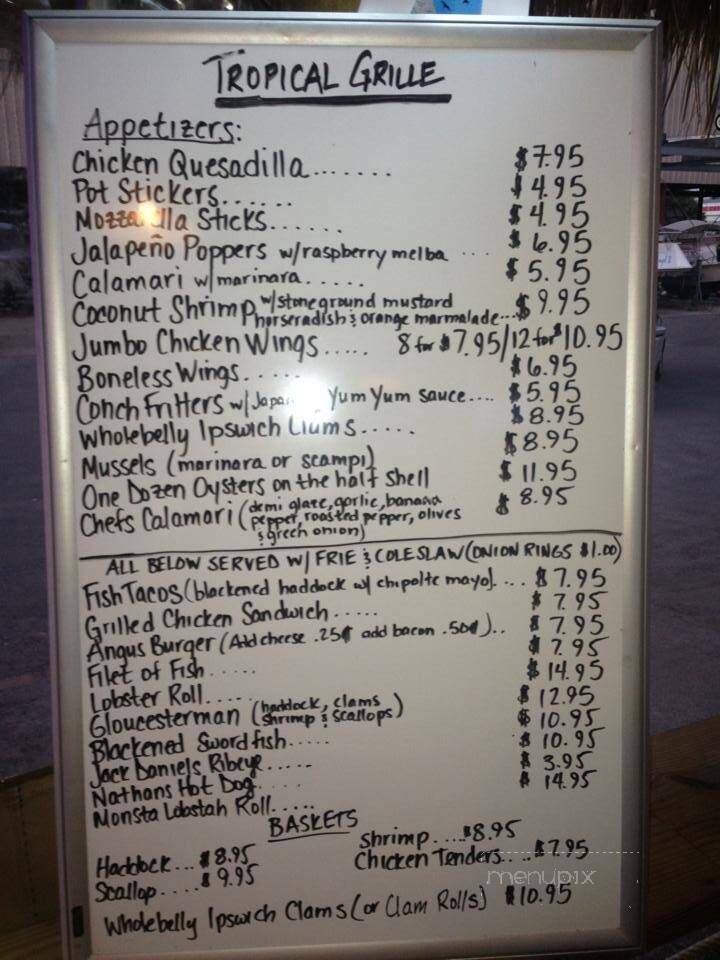 TROPICAL GRILLE
Appetizers:
Chicken Quesadilla....... $7.95
Pot Stickers...... $4.95
Sticks...... $4.95
Jalapeño Poppers w/raspberry melba ... $6.95
Calamari w/marinara..... $5.95
Coconut Shrimp w/stoneground mustard
horseradish & orange marmalade... $9.95
Jumbo Chicken Wings..... 8 for $7.95/12 for $10.95
Boneless Wings..... $6.95
Conch Fritters w/ Yum Yum sauce.... $5.95
Wholebelly Ipswich Clams..... $8.95
Mussels (marinara or scampi) $8.95
One Dozen Oysters on the half Shell $11.95
Chefs Calamari (demi glaze, garlic, banana $8.95
pepper, roasted pepper, olives
& green onion)
ALL BELOW SERVED W/ FRIE & COLESLAW (ONION RINGS $1.00)
Fish Tacos (blackened haddock w/ chipolte mayo).... $7.95
Grilled Chicken Sandwich..... $7.95
Angus Burger (Add cheese .25¢ add bacon .50¢).. $7.95
Filet of Fish..... $7.95
Lobster Roll..... $14.95
Gloucesterman (haddock, clams $12.95
shrimp & scallops)
Blackened Swordfish..... $10.95
Jack Daniels Ribeye..... $10.95
Nathans Hot Dog..... $3.95
Monsta Lobstah Roll..... $14.95
BASKETS
Haddock... $8.95
Scallop.... $9.95
Shrimp.... $8.95
Chicken Tenders.... $7.95
Wholebelly Ipswich Clams (or Clam Rolls) $10.95
menupix